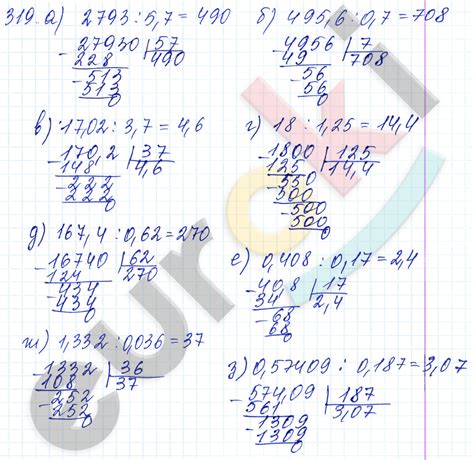 319. а) 2793 : 5,7 = 490
27930 | 57
228 | 490
513
513
0
б) 495,6 : 0,7 = 708
4956 | 7
49 | 708
56
56
0
в) 17,02 : 3,7 = 4,6
170,2 | 37
148 | 4,6
222
222
0
г) 18 : 1,25 = 14,4
1800 | 125
125 | 14,4
550
500
500
500
0
д) 167,4 : 0,62 = 270
16740 | 62
124 | 270
434
434
0
е) 0,408 : 0,17 = 2,4
40,8 | 17
34 | 2,4
68
68
0
ж) 1,332 : 0,036 = 37
1332 | 36
108 | 37
252
252
0
з) 0,57409 : 0,187 = 3,07
574,09 | 187
561 | 3,07
1309
1309
0
euroki